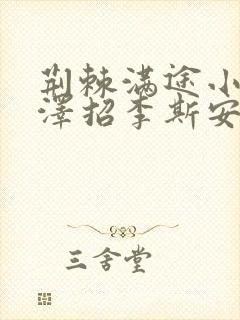 荆棘满途小
泽招李斯安
三舍堂